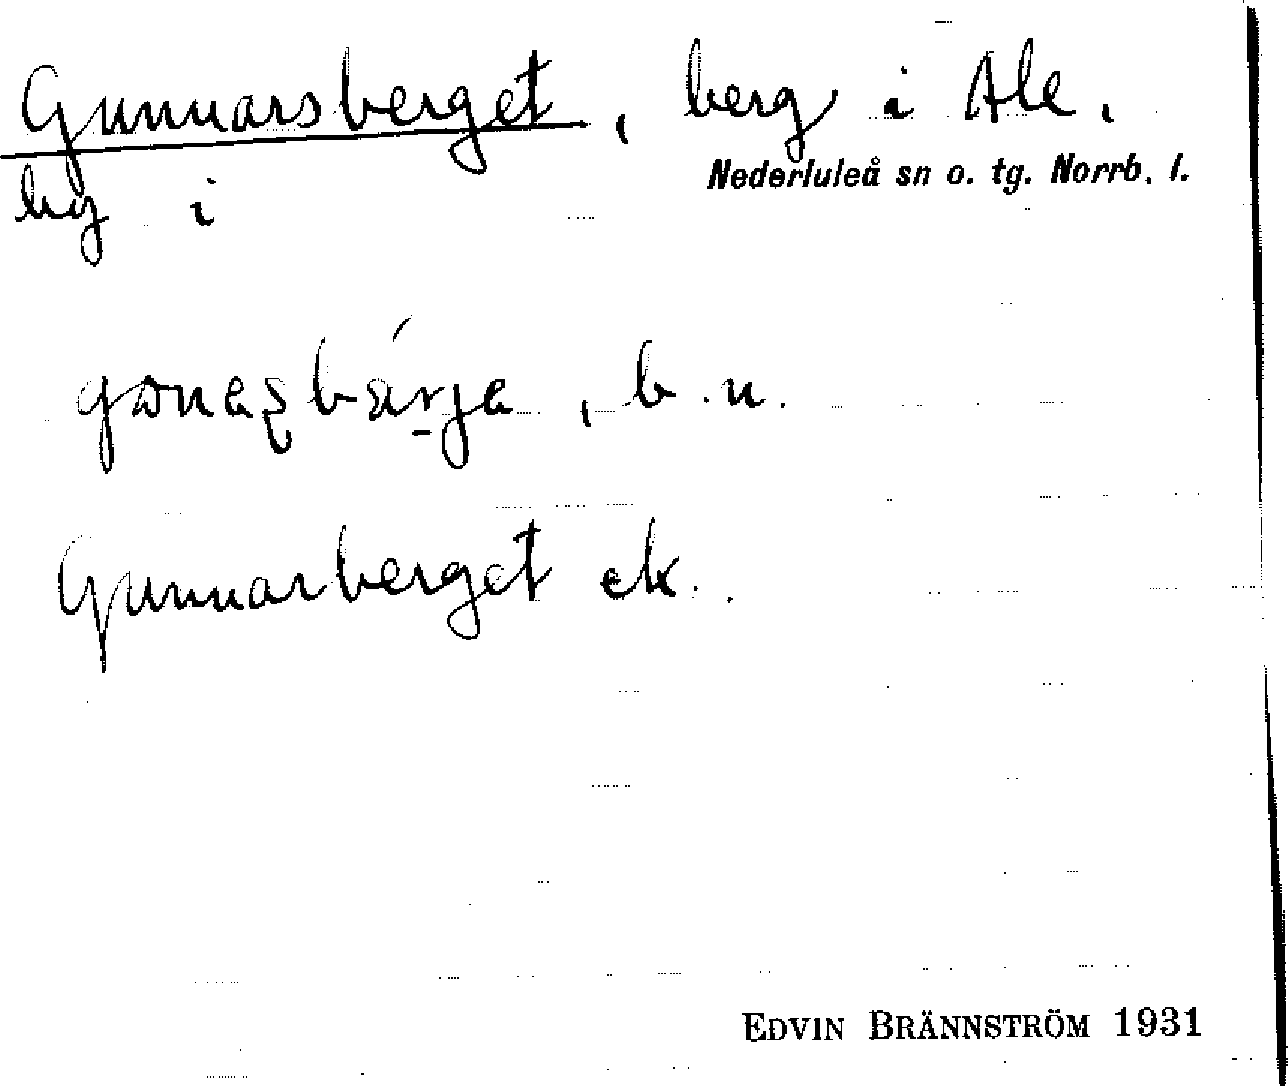 Gunnarsberget, berg i Ale,
Nederluleå sn o. tg. Norrb. l.
by i
, b.n.
Gunnarberget ek.
EDVIN BRÄNNSTRÖM 1931